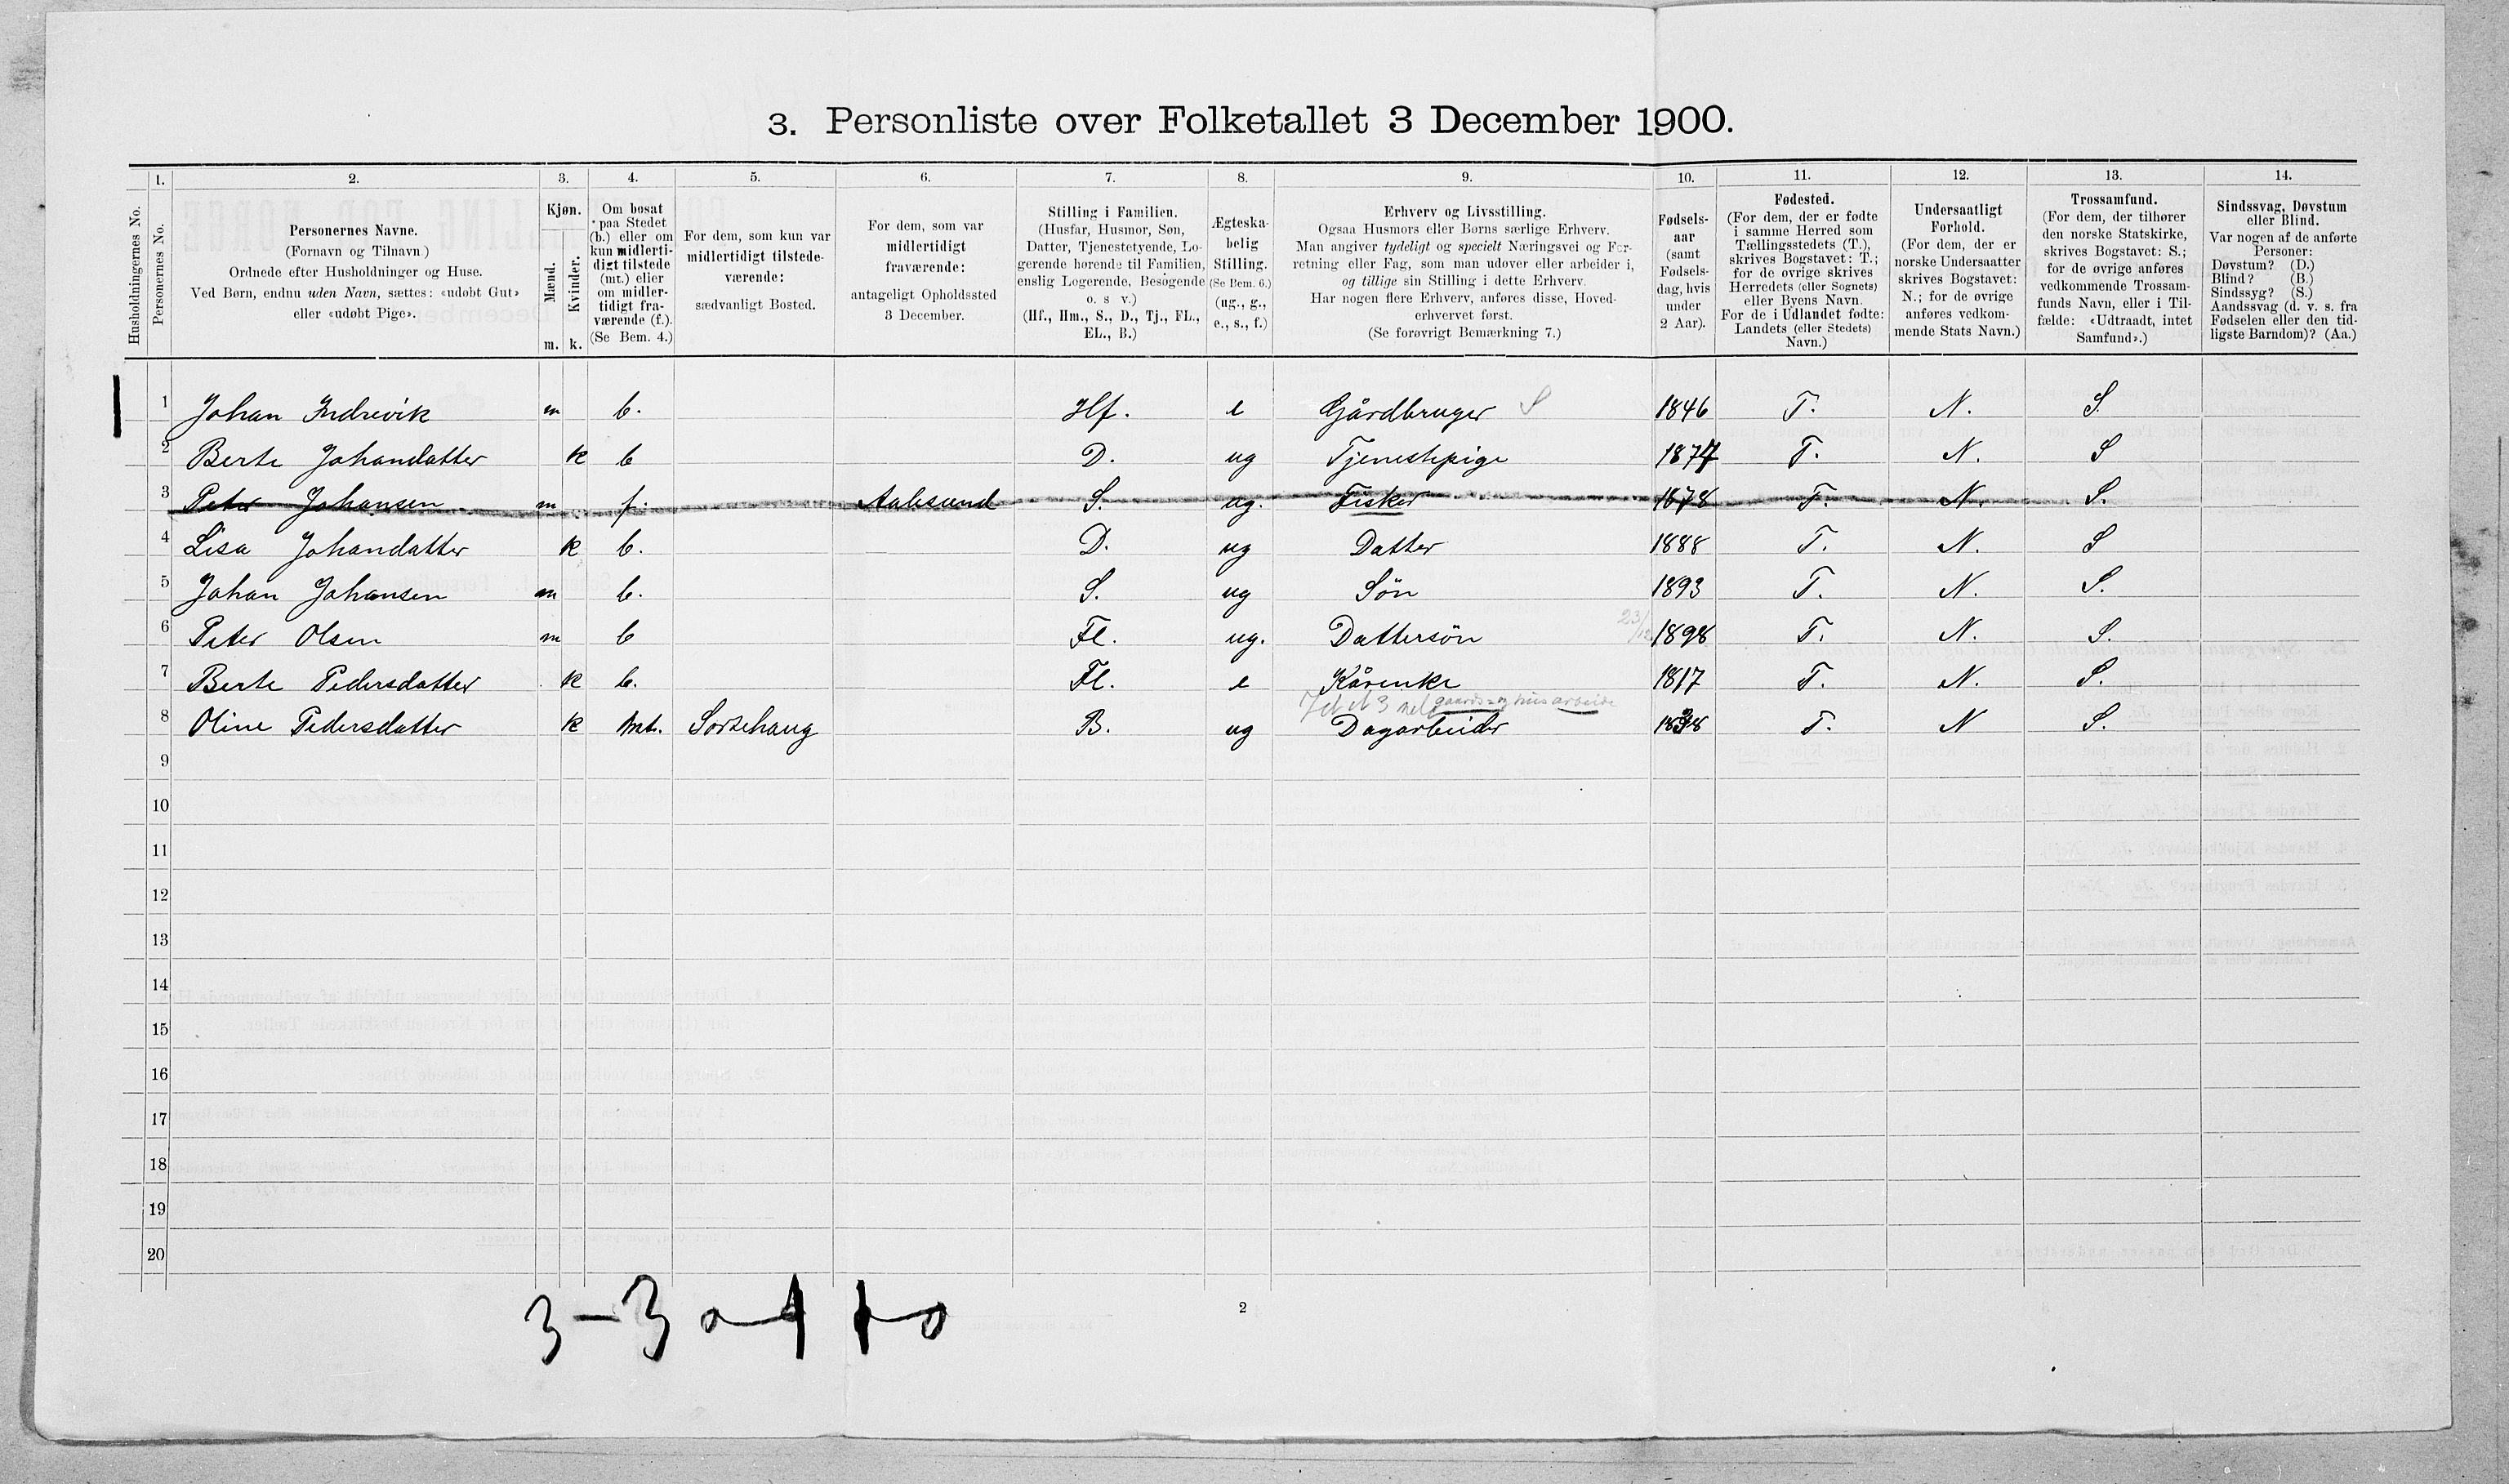 3. Personliste over Folketallet 3 December 1900.
1. 2. 3. 4. 5. 6. 7. 8. 9. 10. 11. 12. 13. 14.
Husholdningernes No.
Personernes No.
Personernes Navne.
(Fornavn og Tilnavn)
Ordnede efter Husholdninger og Huse.
Ved Børn, endnu uden Navn, sættes: «udøbt Gut»
eller «udøbt Pige».
Kjøn.
Mænd.
Kvinder.
m. k.
Om bosat
paa Stedet
(b.) eller om
kun midlerti-
digt tilstede
(mt.) eller
om midler-
tidigt fra-
værende (f.).
(Se Bem. 4.)
For dem, som kun var
midlertidigt tilstede-
værende:
sædvanligt Bosted.
For dem, som var
midlertidigt
fraværende:
antageligt Opholdssted
3 December.
Stilling i Familien.
(Husfar, Husmor, Søn,
Datter, Tjenestetyende, Lo-
gerende hørende til Familien,
enslig Logerende, Besøgende
o. s v.)
(Hf., Hm., S., D., Tj., FL.,
EL., B.)
Ægteska-
belig
Stilling.
(Se Bem. 6.)
(ug., g.,
e., s., f.)
Erhverv og Livsstilling.
Ogsaa Husmors eller Børns særlige Erhverv.
Man angiver tydeligt og specielt Næringsvei og For-
retning eller Fag, som man udøver eller arbeider i,
og tillige sin Stilling i dette Erhverv.
Har nogen flere Erhverv, anføres disse, Hoved-
erhvervet først.
(Se forøvrigt Bemærkning 7.)
Fødsels-
aar
(samt
Fødsels-
dag, hvis
under
2 Aar).
Fødested.
(For dem, der er fødte
i samme Herred som
Tællingsstedets (T.),
skrives Bogstavet: T.;
for de øvrige skrives
Herredets (eller Sognets)
eller Byens Navn.
For de i Udlandet fødte:
Landets (eller Stedets)
Navn.)
Undersaatligt
Forhold.
(For dem, der er
norske Undersaatter
skrives Bogstavet:
N.; for de øvrige
anføres vedkom-
mende Stats Navn.)
Trossamfund.
(For dem, der tilhører
den norske Statskirke,
skrives Bogstavet: S.;
for de øvrige anføres
vedkommende Trossam-
funds Navn, eller i Til-
fælde: «Udtraadt, intet
Samfund».)
Sindssvag, Døvstum
eller Blind.
Var nogen af de anførte
Personer:
Døvstum? (D.)
Blind? (B.)
Sindssyg? (S.)
Aandssvag (d. v. s. fra
Fødselen eller den tid-
ligste Barndom)? (Aa.)
1 Johan Indrevik m b. Hf. e Gårdbruger S 1846 T. N. S.
2 Berte Johandatter k b D. ug Tjenestepige 1874 T. N. S
3 Peter Johansen m f. Aalesund S. ug. Fisker 1878 T. N. S.
4 Lisa Johandatter k b. D. ug Datter 1888 T. N. S
5 Johan Johansen m b. S. ug Sön 1893 T. N. S.
6 Peter Olsen m b Fl. ug. Dattersön 23/12 1898 T. N. S.
7 Berte Pedersdatter k b. Fl. e Kårenke 1817 T. N. S.
gaards og husarbeide
8 Oline Pedersdatter k mt. Sortehaug B. ug Dagarbeider T. N S.
9
10
11
12
13
14
15
16
17
18
19
20
3-3
2